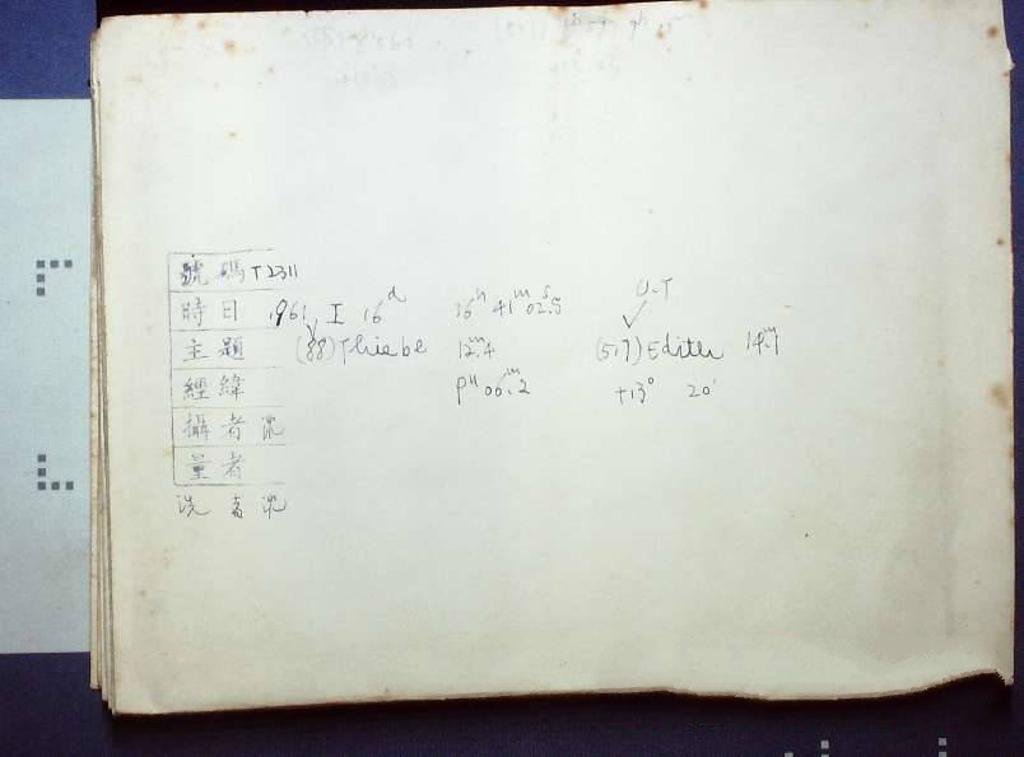 號碼 T2311
時日 1961, I 16ᵈ 16ʰ 41ᵐ 02.5ˢ U.T
主題 (88) Thisbe 12ᵐ.4 (517) Edith 14ᵐ.1
經緯 06ᵐ.2 +13° 20'
攝者 沈
量者
洗者 沈